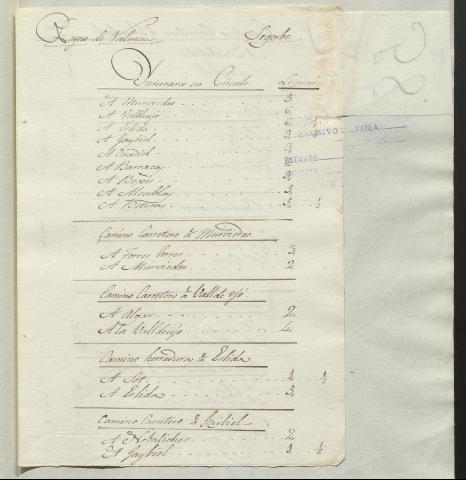 Reyno de Valencia Segorbe
Itinerario en Circulo Leguas
A Murviedro 5
A Valldeujo 6
A Eslida
A Gaybiel 3
A Xaudiel 3
A Barracas
A Bexis 5
A Alcublas 5
A Beteras 5 ½
Camino Carretero á Murviedro
A Torres torres 3
A Murviedro 2
Camino Carretero á Vall de ujó
A Alcar 2
A la Valldeujo 4
Camino herradura á Eslida
A Sot 1 ½
A Eslida 5
Camino Carretero á Gaibiel
A Nabajas 2
A Gaybiel 1 ½
ARCHIVO TABLA
ESTANTE